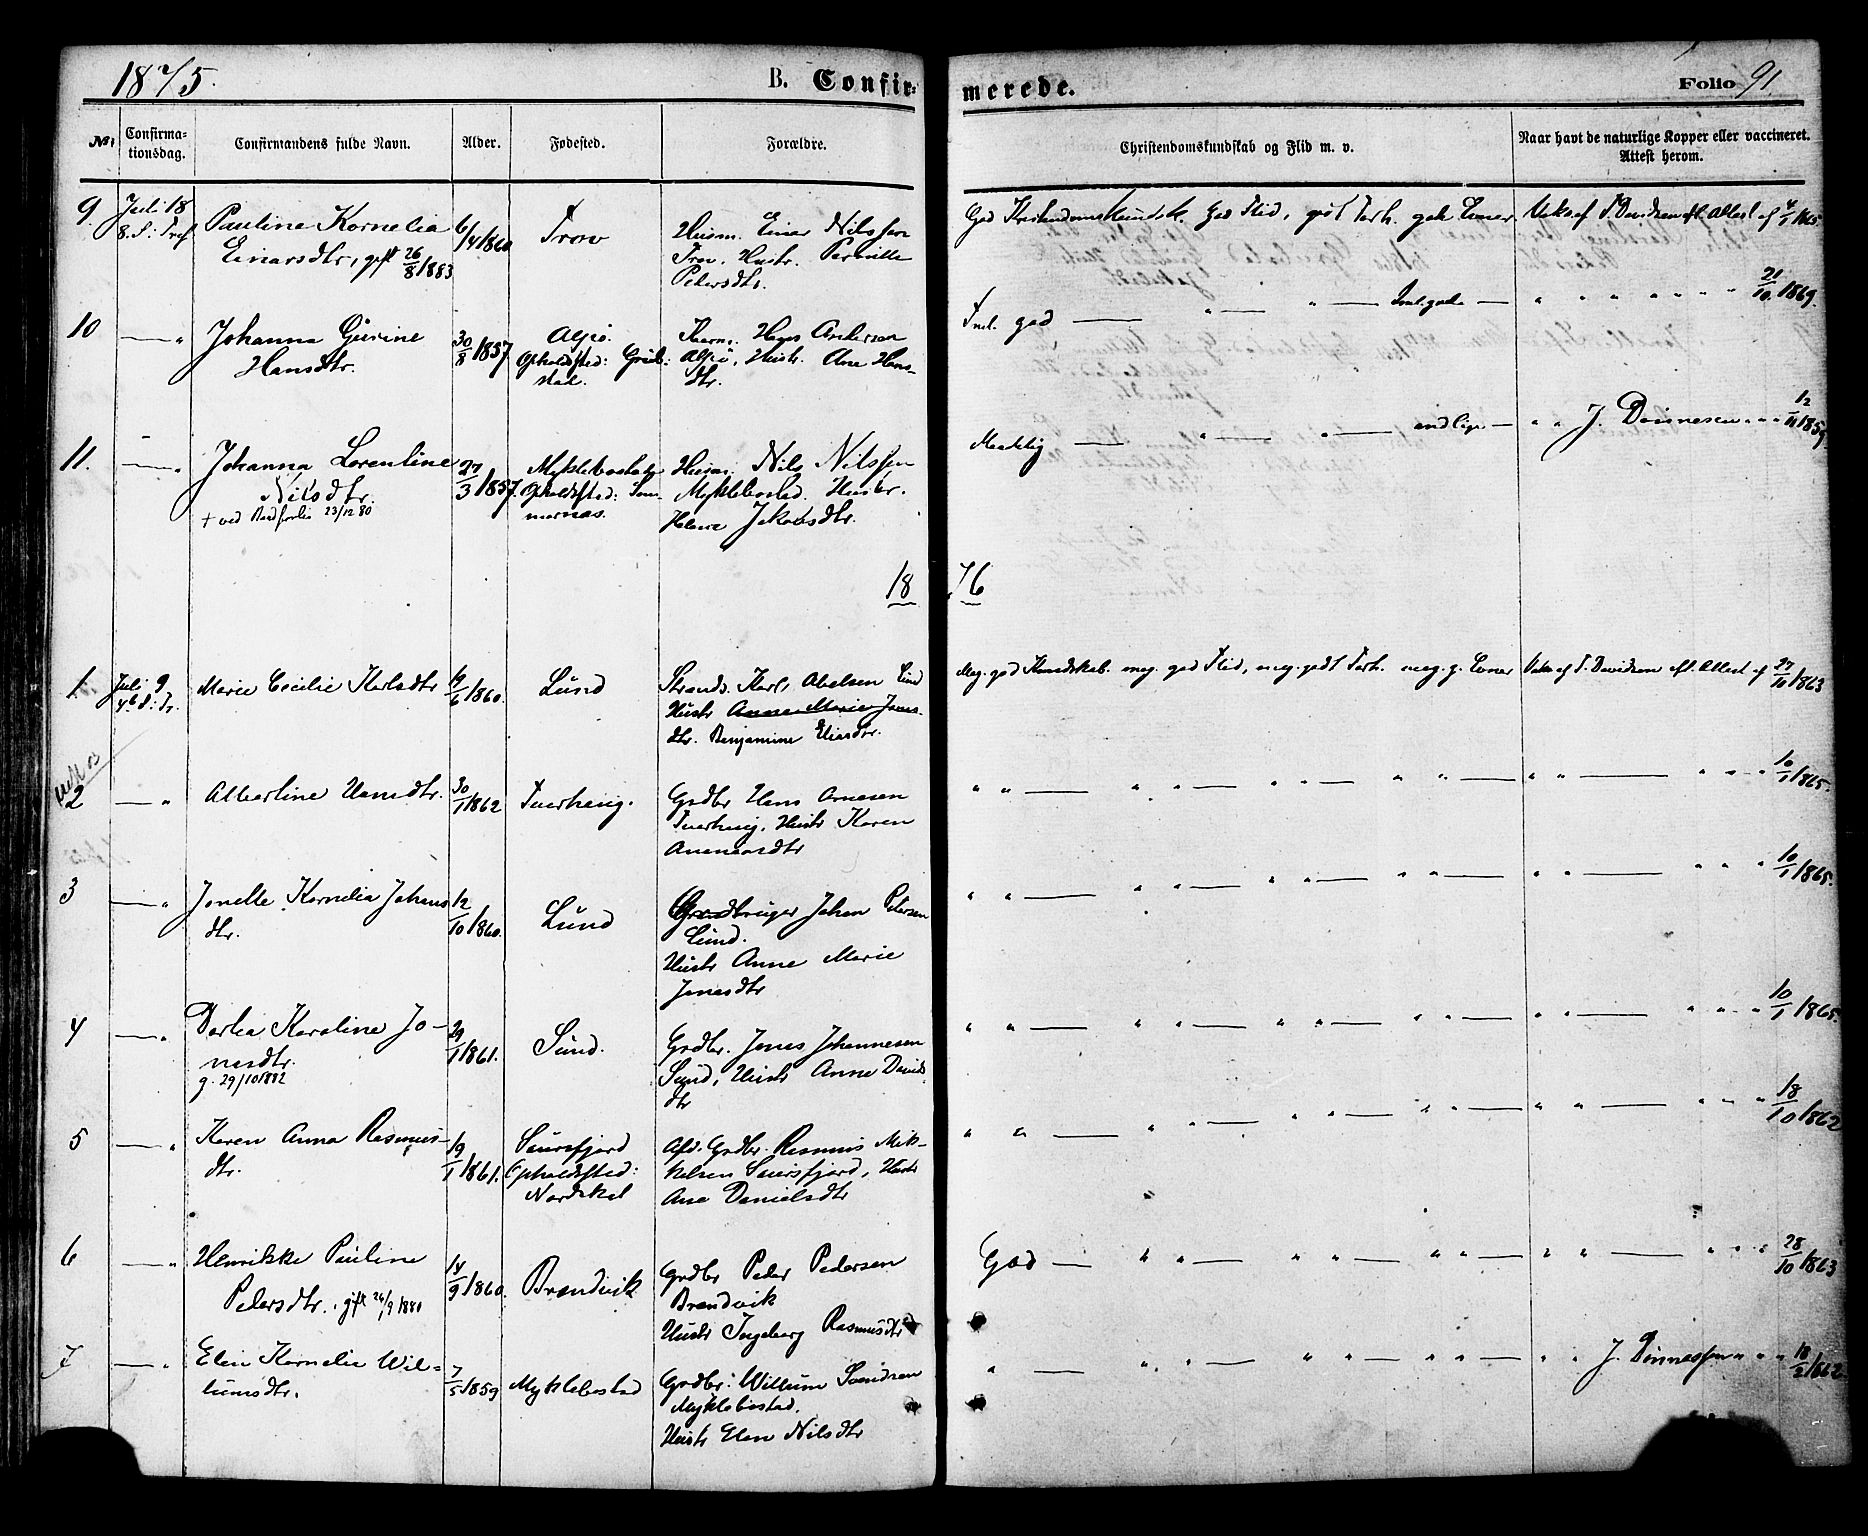 1875.
B. Confir-
merede.
Folio 91
No.
Confirma-
tionsdag.
Confirmandens fulde Navn.
Alder.
Fødested.
Forældre.
Christendomskundskab og Flid m. v.
Naar havt de naturlige Kopper eller vaccineret.
Attest herom.
9.
Juli 18
8. S. Tref
Pauline Kornelia
Einarsdtr, gift 26/8/1883
6/4/1860
Trov
Husm. Einar Nilssen
Trov, Hustr.
Petersdtr.
God god Flid, godt Forh.
Vak. af Davidsen efl. Attest af 4/1 1865.
10
— "
Johanna Gurine
Hansdtr.
30/8/1857
Alsjö.
Opholdsted:
Hans Andersen
Alsjö, Hustr. Ane Hans-
dtr.
Tml. god — " — " — Tml. gode — " " " " " " " 21/10 1869.
11.
— "
Johanna Lorentine
Nilsdtr.
+ ved 23/12 80
27/3/1857
Myklebostad
Opholdsted:
Husm. Nils Nilssen
Myklebostad. Hustr.
Jakobsdtr.
Maadelig — " — " — — " " J. Dönnesen " " 12/11/1859
1876
1
Juli 9
4de S. Tr.
Marie Cecilie Karlsdtr
9/6/1860.
Lund
Strands. Karl Abelsen Lund
Hustr Anne Marie Jons-
dtr. Benjamine Eliasdtr.
Meg. god Kundskab. meg. god Flid, meg. godt Forh. meg. g. Evner
Vak. af T. Davidsen efl. Attest af 27/10/1863
2
— "
Albertine Hansdtr.
30/1/1862
Tverheug.
Grdbr Hans Arnesen
Tverheug, Hustr Karen
" " — " " — " " — " " — " " — " " " 10/1/1865.
3
— "
Jonette Kornelia Johans
dtr.
12/10/1860.
Lund
Grundbruger Johan Petersen
Lund.
Hustr Anne Marie
Jonasdtr
" " — " " — " " — " " — " " — " " " 10/1/1865.
4
— "
Dortea Karoline Jo-
nasdtr.
g. 29/10 1882
29/1/1861.
Sund.
Grdbr. Jonas Johannesen
Sund, Hustr Anne Davids
dtr
" " — " " — " " — " " — " " — " " " 10/1/1865.
5
— "
Karen Anna Rasmus-
dtr.
19/1/1861.
Saursfjord
Opholdsted:
Nordskot
Afd. Grdbr. Rasmus Mik-
kelsen Saursfjord, Hustr
Ane Danielsdtr
" " — " " — " " — " " — " " — " " " 18/10/1862
6
— "
Henrikke Pauline
Pedersdtr. gift 26/9 1880
14/9/1860.
Brandvik
Grdbr Peder Pedersen
Brandvik
Hustr Ingeborg Rasmusdtr
God — " " — " " — " " — " " — " " " 28/10/1863
7
— "
Elen Kornelie Wil-
lumsdtr.
7/5/1859
Myklebostad
Grdbr: Willum Svendsen
Myklebostad.
Hustr Elen Nilsdtr
" — " " — " " — " " — " " J. Dönnessen " " 18/2/1862